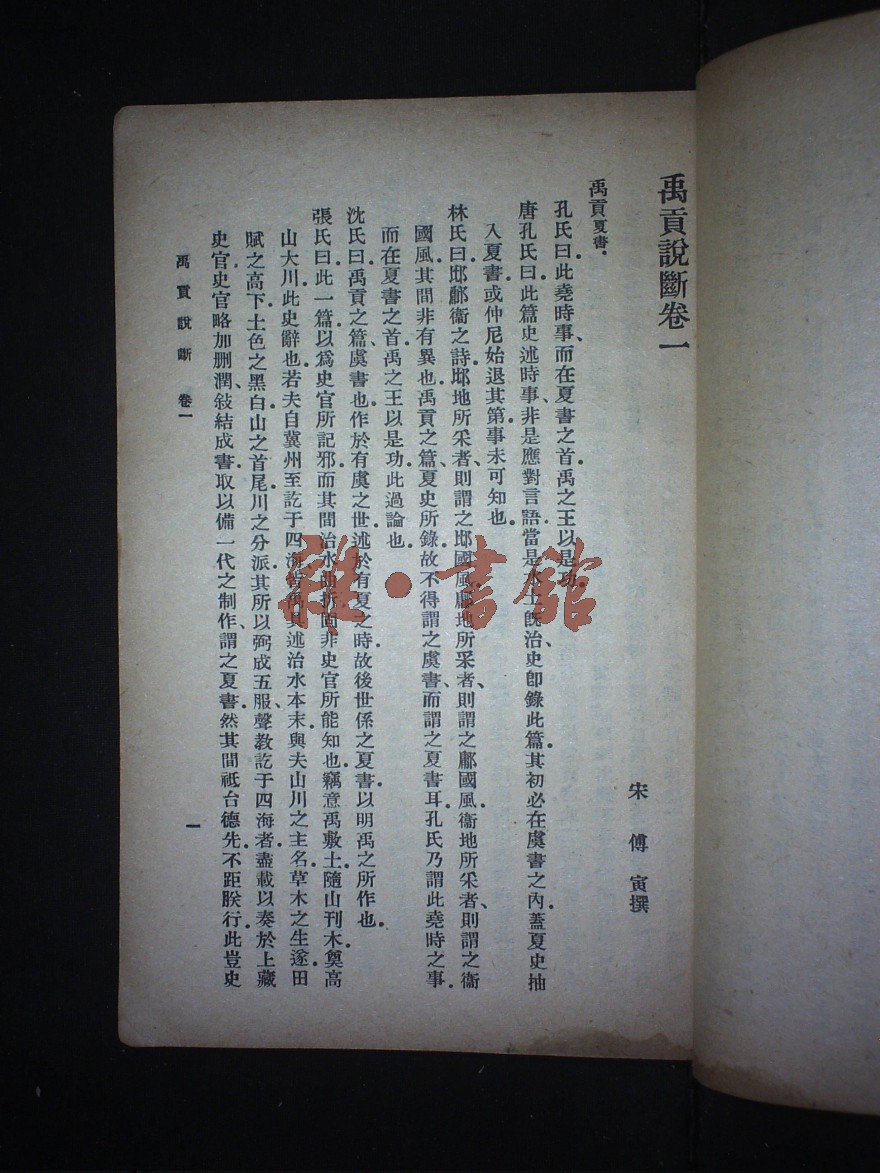 禹貢說斷卷一
宋　傅　寅撰
禹貢夏書．
孔氏曰．此堯時事、而在夏書之首．禹之王以是功．
唐孔氏曰．此篇史述時事、非是應對言語．當是水土既治．史卽錄此篇．其初必在虞書之內．蓋夏史抽
入夏書．或仲尼始退其第．事未可知也．
林氏曰．邶鄘衞之詩．邶地所采者、則謂之邶國風．鄘地所采者、則謂之鄘國風．衞地所采者、則謂之衞
國風．其間非有異也．禹貢之篇、夏史所錄．故不得謂之虞書、而謂之夏書耳．孔氏乃謂此堯時之事．
而在夏書之首．禹之王以是功．此過論也．
沈氏曰．禹貢之篇、虞書也．作於有虞之世．述於有夏之時．故後世係之夏書．以明禹之所作也．
張氏曰．此一篇以爲史官所記邪．而其間治水曲折．固非史官所能知也．竊意禹敷土．隨山刊木．奠高
山大川．此史辭也．若夫自冀州至訖于四海．皆禹具述治水本末．與夫山川之主名．草木之生遂．田
賦之高下．土色之黑白．山之首尾．川之分派．其所以弼成五服、聲教訖于四海者．盡載以奏於上．藏
史官．史官略加刪潤、敍結成書．取以備一代之制作、謂之夏書．然其間祗台德先．不距朕行．此豈史
禹貢說斷　卷一
一
雜·書館